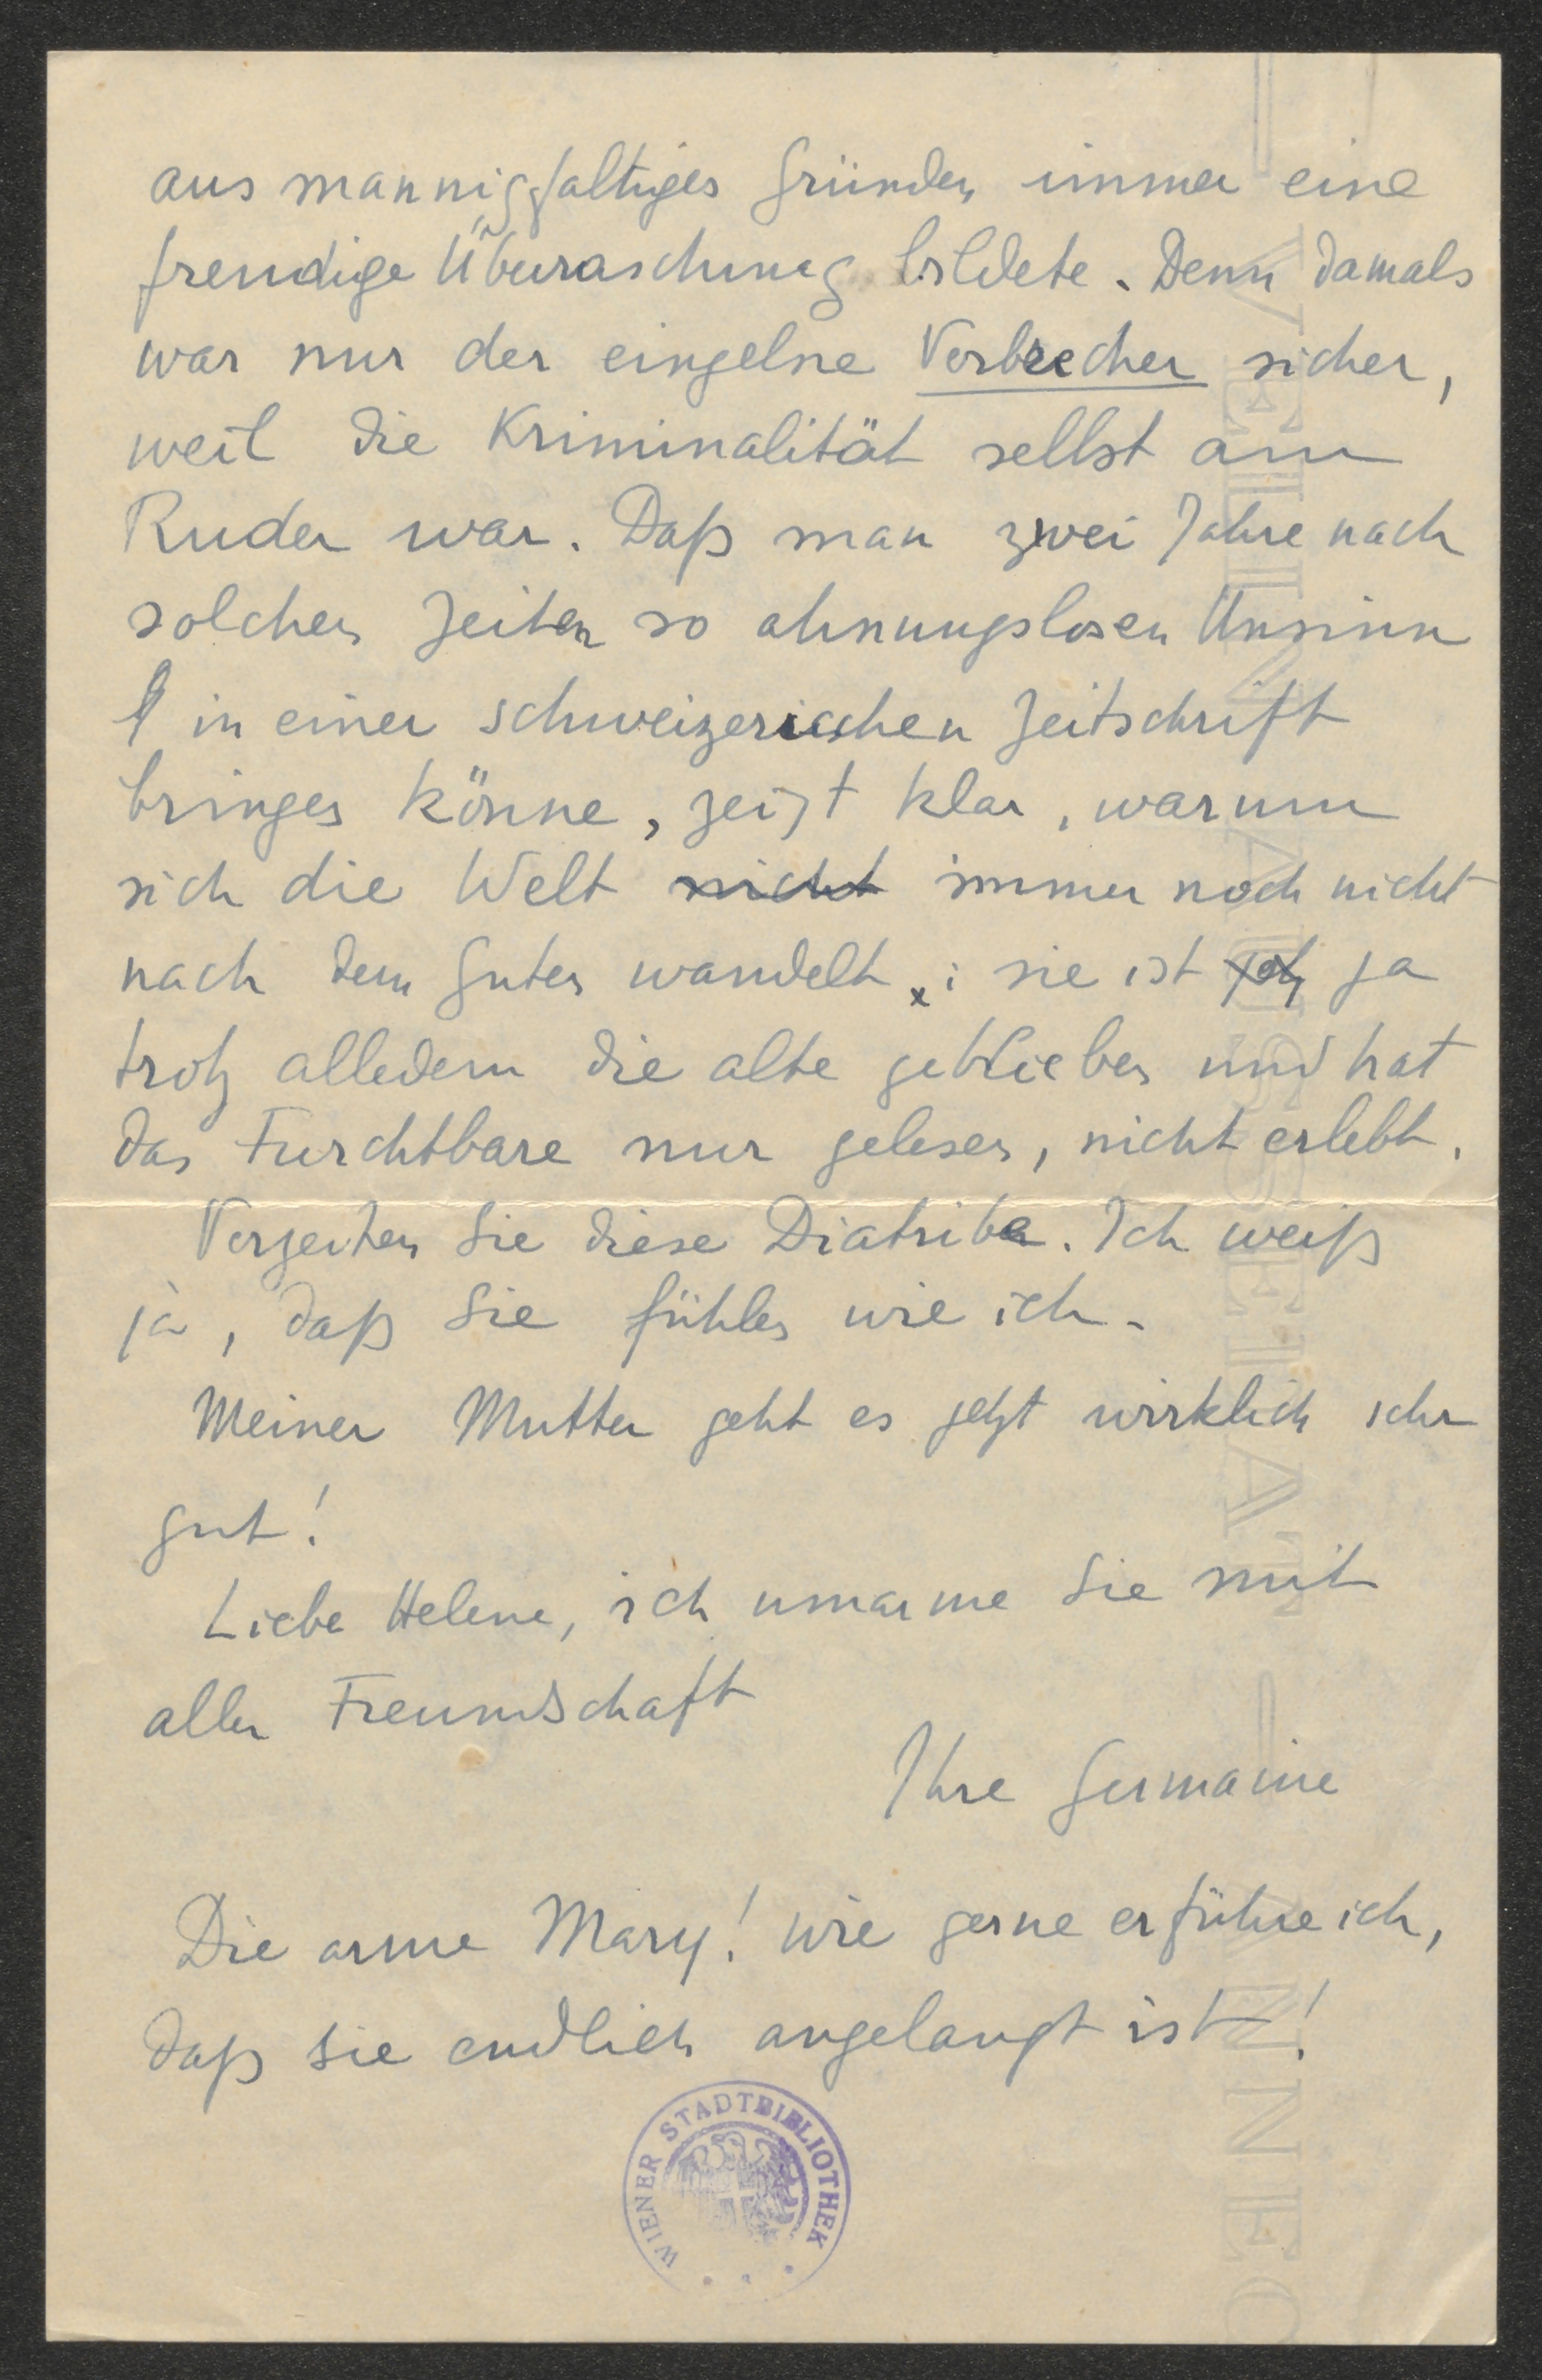 aus mannigfaltigen Gründen immer eine
freudige Überraschung bildete. Denn damals
war nur der einzelne Verbrecher sicher,
weil die Kriminalität selbst am
Ruder war. Daß man zwei Jahre nach
solchen Zeiten so ahnungslosen Unsinn
in einer schweizerischen Zeitschrift
bringen könne, zeigt klar, warum
sich die Welt nicht immer noch nicht
nach dem Guten wandelt: sie ist ja
trotz alledem die alte geblieben und hat
das Furchtbare nur gelesen, nicht erlebt.
Verzeihen Sie diese Diatribe. Ich weiß
ja, daß Sie fühlen wie ich.
Meiner Mutter geht es jetzt wirklich sehr
gut!
Liebe Helene, ich umarme Sie mit
aller Freundschaft
Ihre Germaine
Die arme Mary! wie gerne erführe ich,
daß sie endlich angelangt ist!
WIENER STADTBIBLIOTHEK